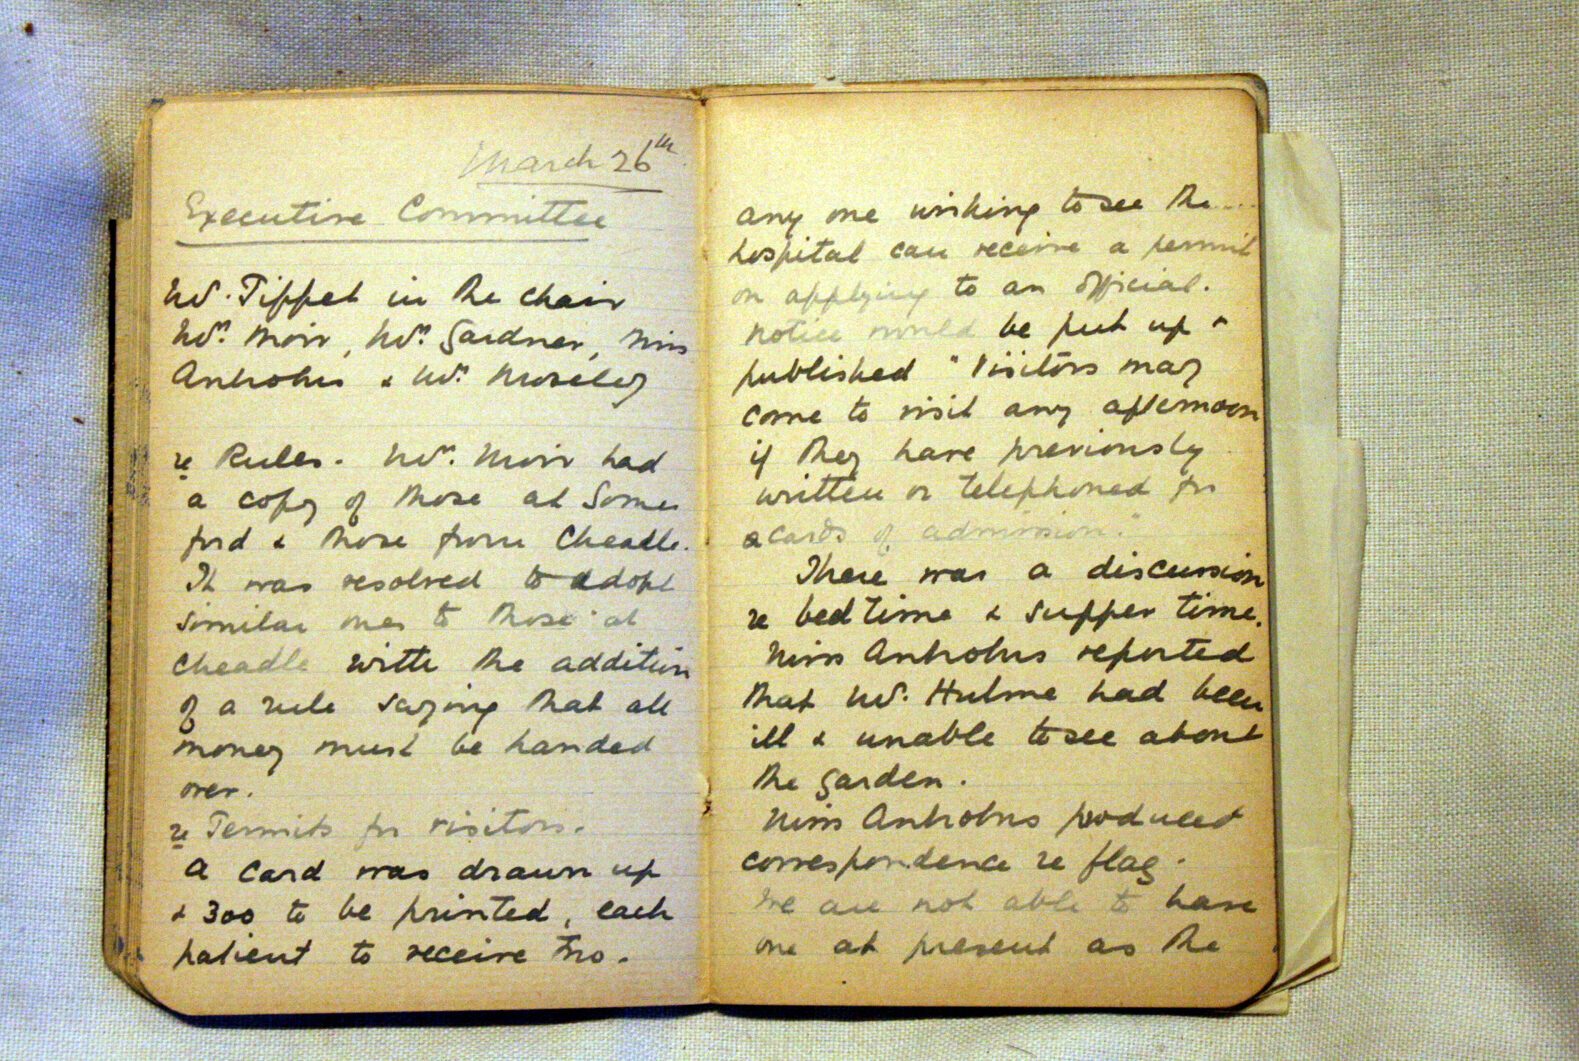 March 26th
Executive Committee
Mr. Tippet in the chair
Mrs. Moir, Mrs. Gardner, Miss
Antrobus & Mrs. Moseley
re Rules. Mrs. Moir had
a copy of those at Somer
ford & those from Cheadle.
It was resolved to adopt
similar ones to those at
Cheadle with the addition
of a rule saying that all
money must be handed
over.
re Permits for visitors.
A card was drawn up
& 300 to be printed, each
patient to receive two.
any one wishing to see the ....
hospital can receive a permit
on applying to an official.
Notice would be put up &
published "Visitors may
come to visit any afternoon
if they have previously
written or telephoned for
a cards of admission."
There was a discussion
re bed time & supper time.
Miss Antrobus reported
that Mr. Hulme had been
ill & unable to see about
the garden.
Miss Antrobus produced
correspondence re flag.
We are not able to have
one at present as the